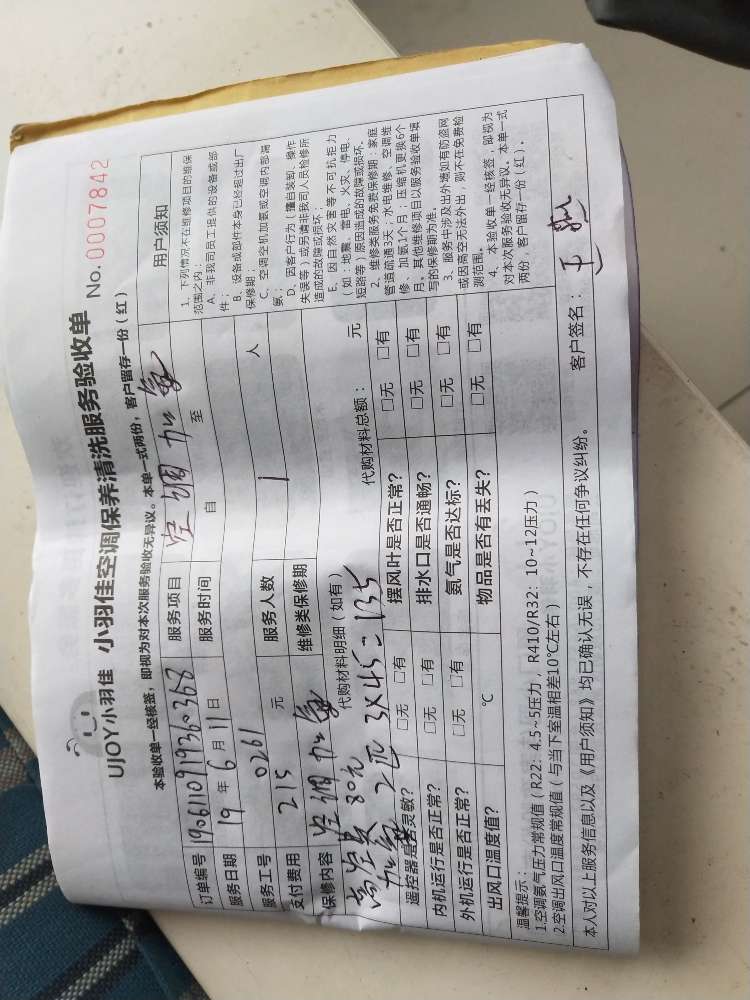 UJOY小羽佳 小羽佳空调保养清洗服务验收单 No.0007842
本验收单一经核签，即视为对本次服务验收无异议。本单一式两份，客户留存一份（红）
订单编号 服务项目 空调加氨
服务日期 19年6月11日 服务时间 自 至
服务工号 0261 服务人数 1 人
支付费用 215 元 维修类保修期
保修内容 空调加氨 代购材料明细（如有） 代购材料总额： 元
高空费 80元
加氨 2匹 3X45=135
遥控器是否灵敏？ □无 □有 摆风叶是否正常？ □无 □有
内机运行是否正常？ □无 □有 排水口是否通畅？ □无 □有
外机运行是否正常？ □无 □有 氨气是否达标？ □无 □有
出风口温度值？ ℃ 物品是否有丢失？ □无 □有
用户须知
1、下列情况不在维修项目的维保
范围之内：
A、非我司员工提供的设备或部
件；
B、设备或部件本身已经超过出厂
保修期
C、空调全机加氨或空调内部漏
氨；
D、因客户行为（擅自装卸、操作
失误等）或另请非我司人员检修所
造成的故障或损坏；
E、因自然灾害等不可抗拒力
（如：地震、雷电、火灾、停电、
短路等）原因造成的故障或损坏。
2、维修类服务免费保修期：家庭
管道疏通3天；水电维修、空调维
修、加氨1个月；压缩机更换6个
月，其他维修项目以服务验收单填
写的保修期为准。
3、服务中涉及出外墙如有防盗网
或因高空无法外出，则不在免费检
测范围。
4、本验收单一经核签，即视为
对本次服务验收无异议。本单一式
两份，客户留存一份（红）。
温馨提示：
1.空调氨气压力常规值（R22：4.5~5压力，R410/R32：10~12压力）
2.空调出风口温度常规值（与当下室温相差10℃左右）
本人对以上服务信息以及《用户须知》均已确认无误，不存在任何争议纠纷。 客户签名：